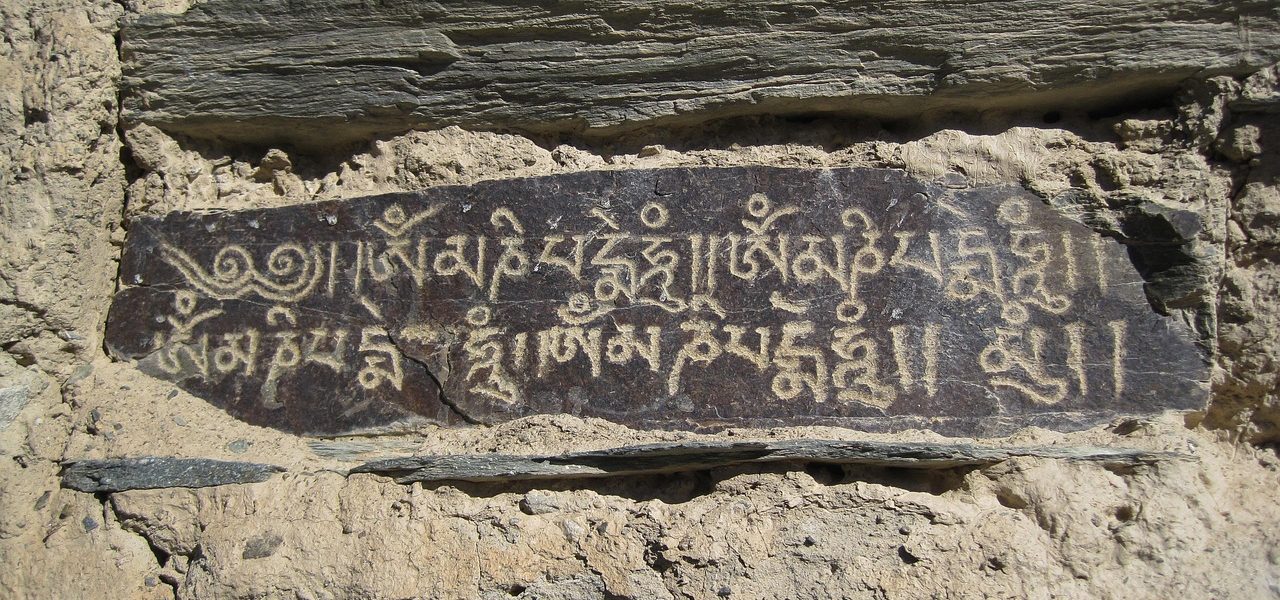 ༄༅།།ཨོཾ་མ་ཎི་པདྨེ་ཧཱུཾ།།ཨོཾ་མ་ཎི་པདྨེ་ཧཱུཾ།།
ཨོཾ་མ་ཎི་པདྨེ་ཧཱུཾ།།ཨོཾ་མ་ཎི་པདྨེ་ཧཱུཾ།།